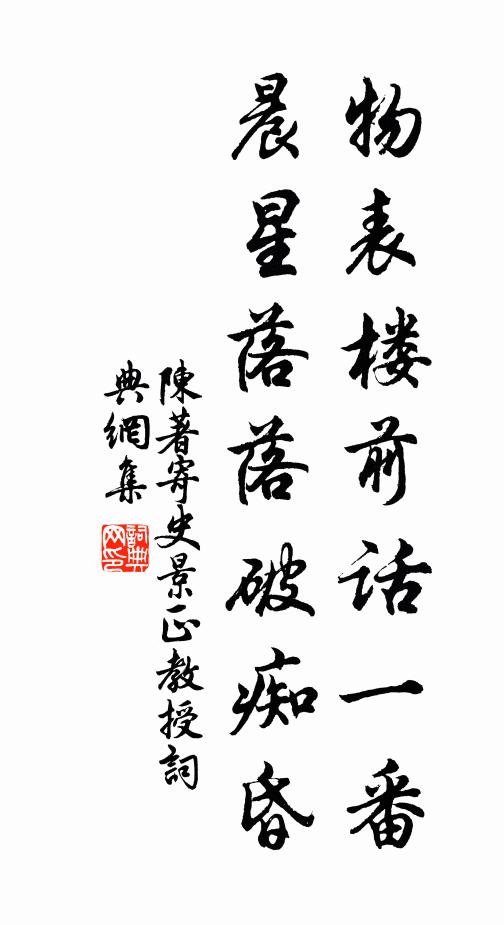 物表楼前话一番
晨星落落破痴昏
陳著寄史景正教授詞
典網集
詞典
网印